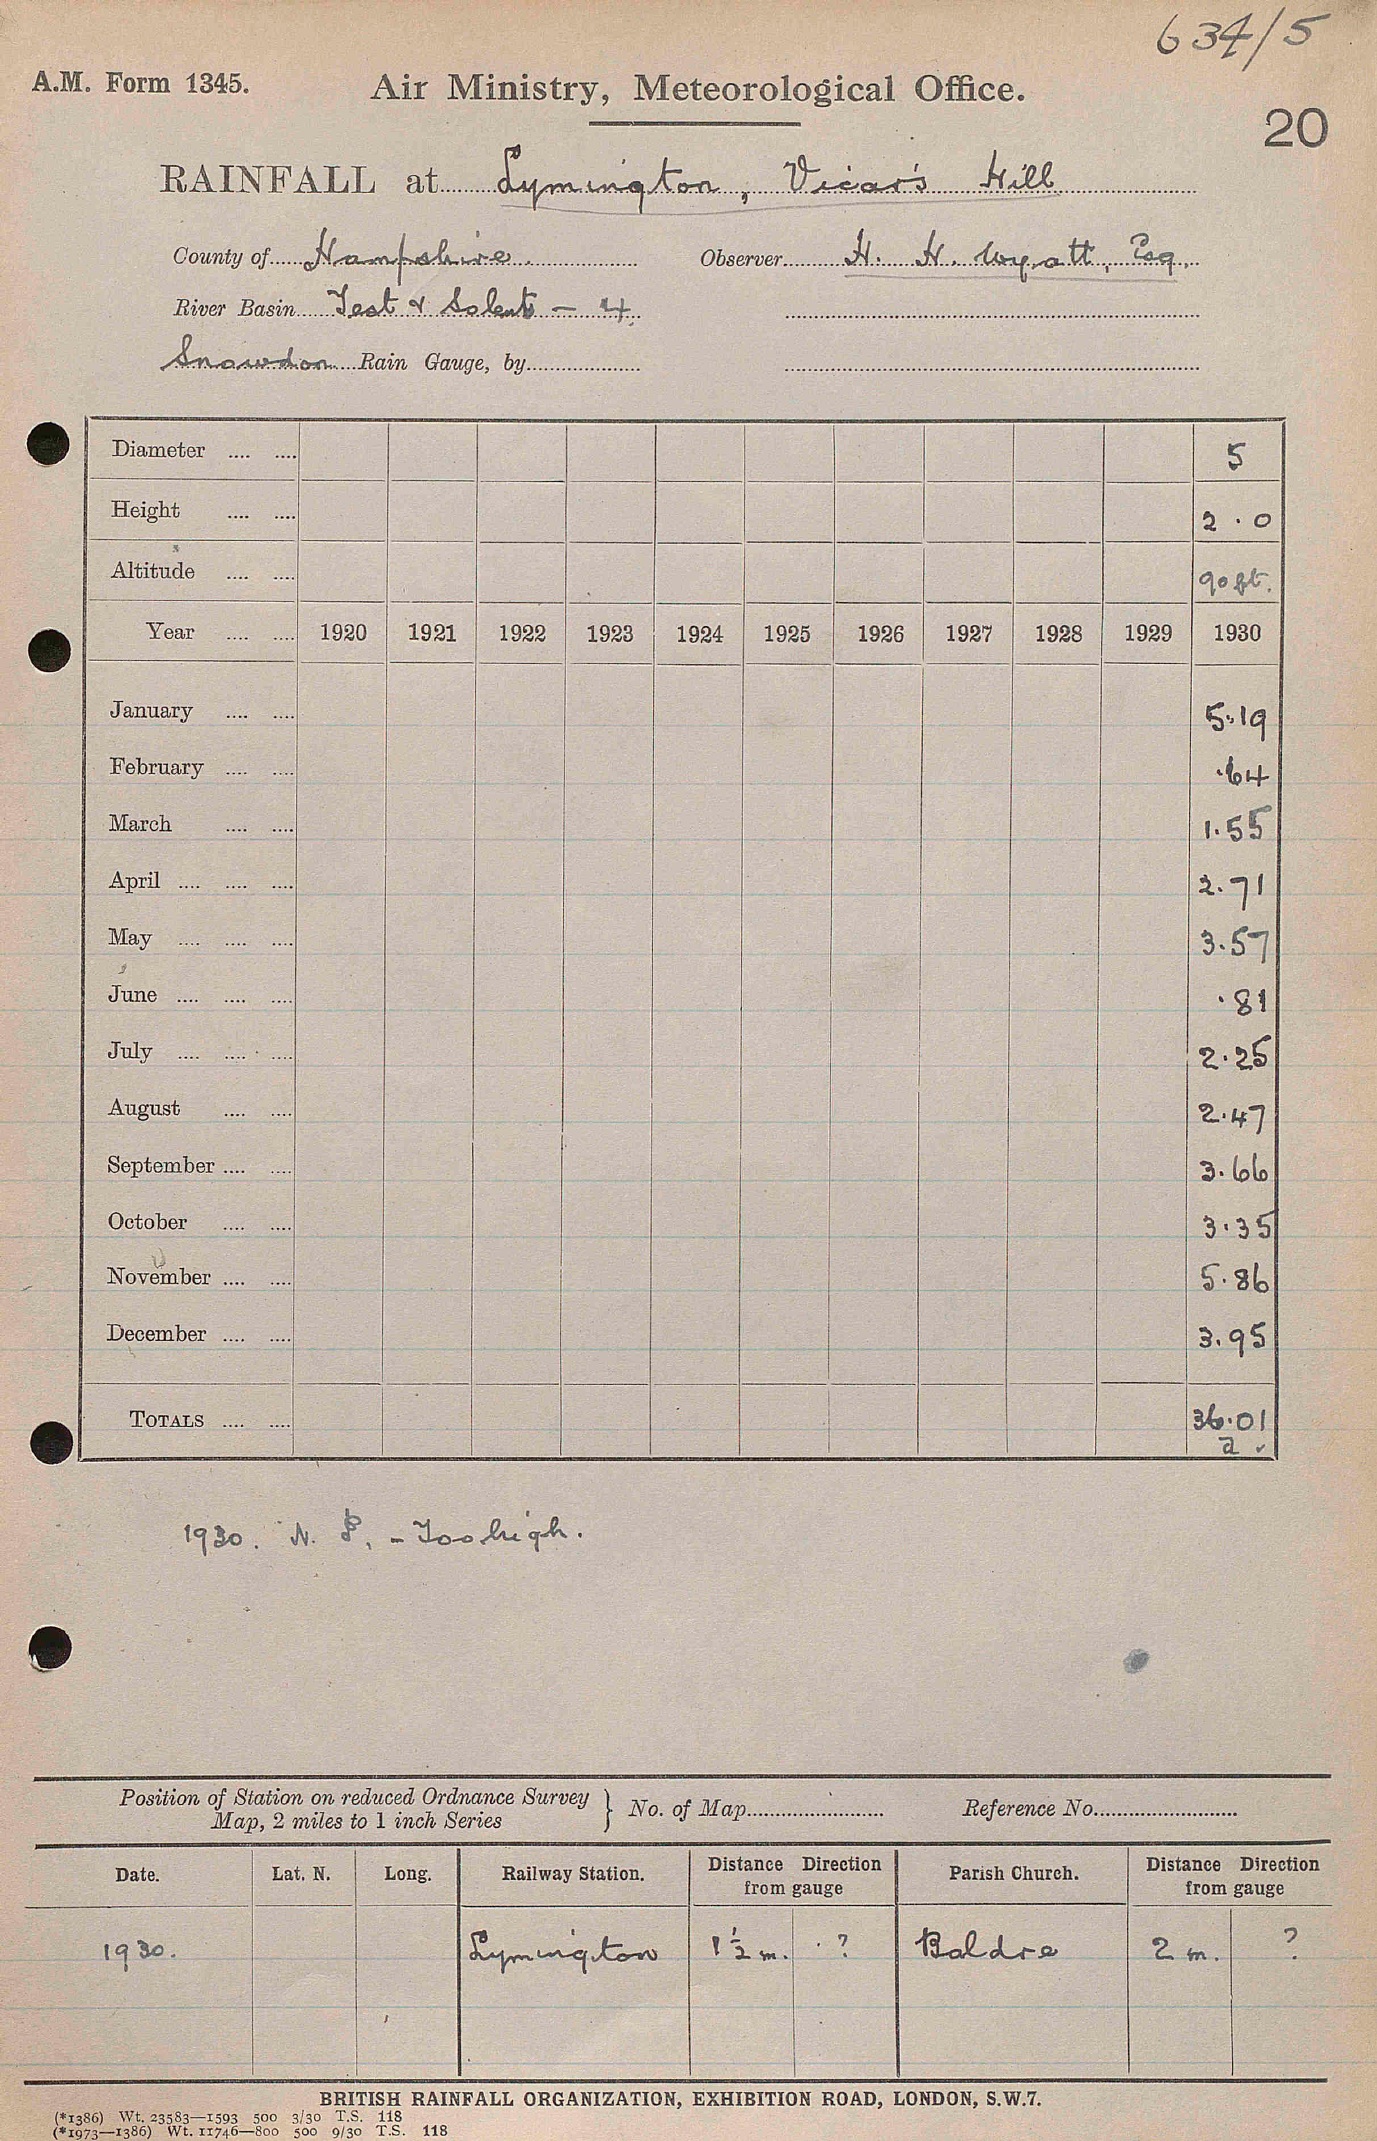 634/5
A.M. Form 1345. Air Ministry, Meteorological Office.
20
RAINFALL at Lymington, Vicar's Hill
County of Hampshire. Observer H. H. Wyatt, Esq.
River Basin Test & Solent – 4.
Snowdon Rain Gauge, by
Diameter .... .... 5
Height .... .... 2.0
Altitude .... .... 90 ft.
Year .... .... 1920 1921 1922 1923 1924 1925 1926 1927 1928 1929 1930
January .... .... 5.19
February .... .... .64
March .... .... 1.55
April .... .... .... 2.71
May .... .... .... 3.57
June .... .... .... .81
July .... .... .... 2.25
August .... .... 2.47
September .... .... 3.66
October .... .... 3.35
November .... .... 5.86
December .... .... 3.95
TOTALS .... .... 36.01
a
1930. N. P. – Too high.
Position of Station on reduced Ordnance Survey
Map, 2 miles to 1 inch Series } No. of Map Reference No.
Date. Lat. N. Long. Railway Station. Distance Direction from gauge Parish Church. Distance Direction from gauge
1930. Lymington 1½ m. ? Boldre 2 m. ?
BRITISH RAINFALL ORGANIZATION, EXHIBITION ROAD, LONDON, S.W.7.
(*1386) Wt. 23583—1593 500 3/30 T.S. 118
(*1973—1386) Wt. 11746—800 500 9/30 T.S. 118